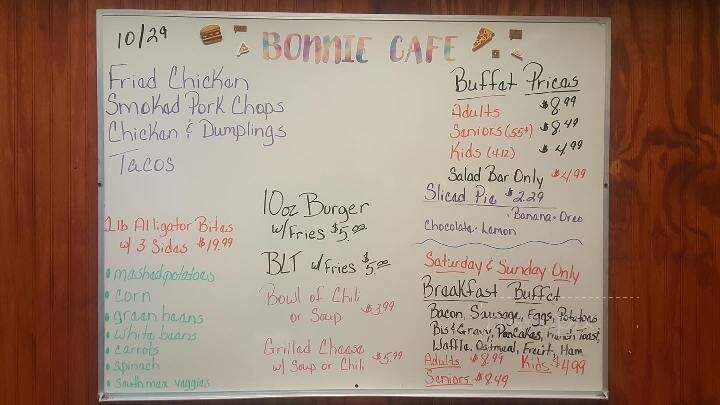 10/29
BONNIE CAFE
Fried Chicken
Smoked Pork Chops
Chicken & Dumplings
Tacos
1lb Alligator Bites
w/ 3 Sides $19.99
• mashed potatoes
• corn
• green beans
• white beans
• carrots
• spinach
• southman veggies
10oz Burger
w/Fries $5.00
BLT w/Fries $5.00
Bowl of Chili
or Soup $3.99
Grilled Cheese
w/ Soup or Chili $5.99
Buffet Prices
Adults $8.99
Seniors (55+) $8.49
Kids (4-12) $4.99
Salad Bar Only $4.99
Sliced Pie $2.29
• Banana • Oreo
Chocolate • Lemon
Saturday & Sunday Only
Breakfast Buffet
Bacon, Sausage, Eggs, Potatoes
Bis & Gravy, Pancakes, French Toast,
Waffle, Oatmeal, Fruit, Ham
Adults $8.99 Kids $4.99
Seniors $8.49